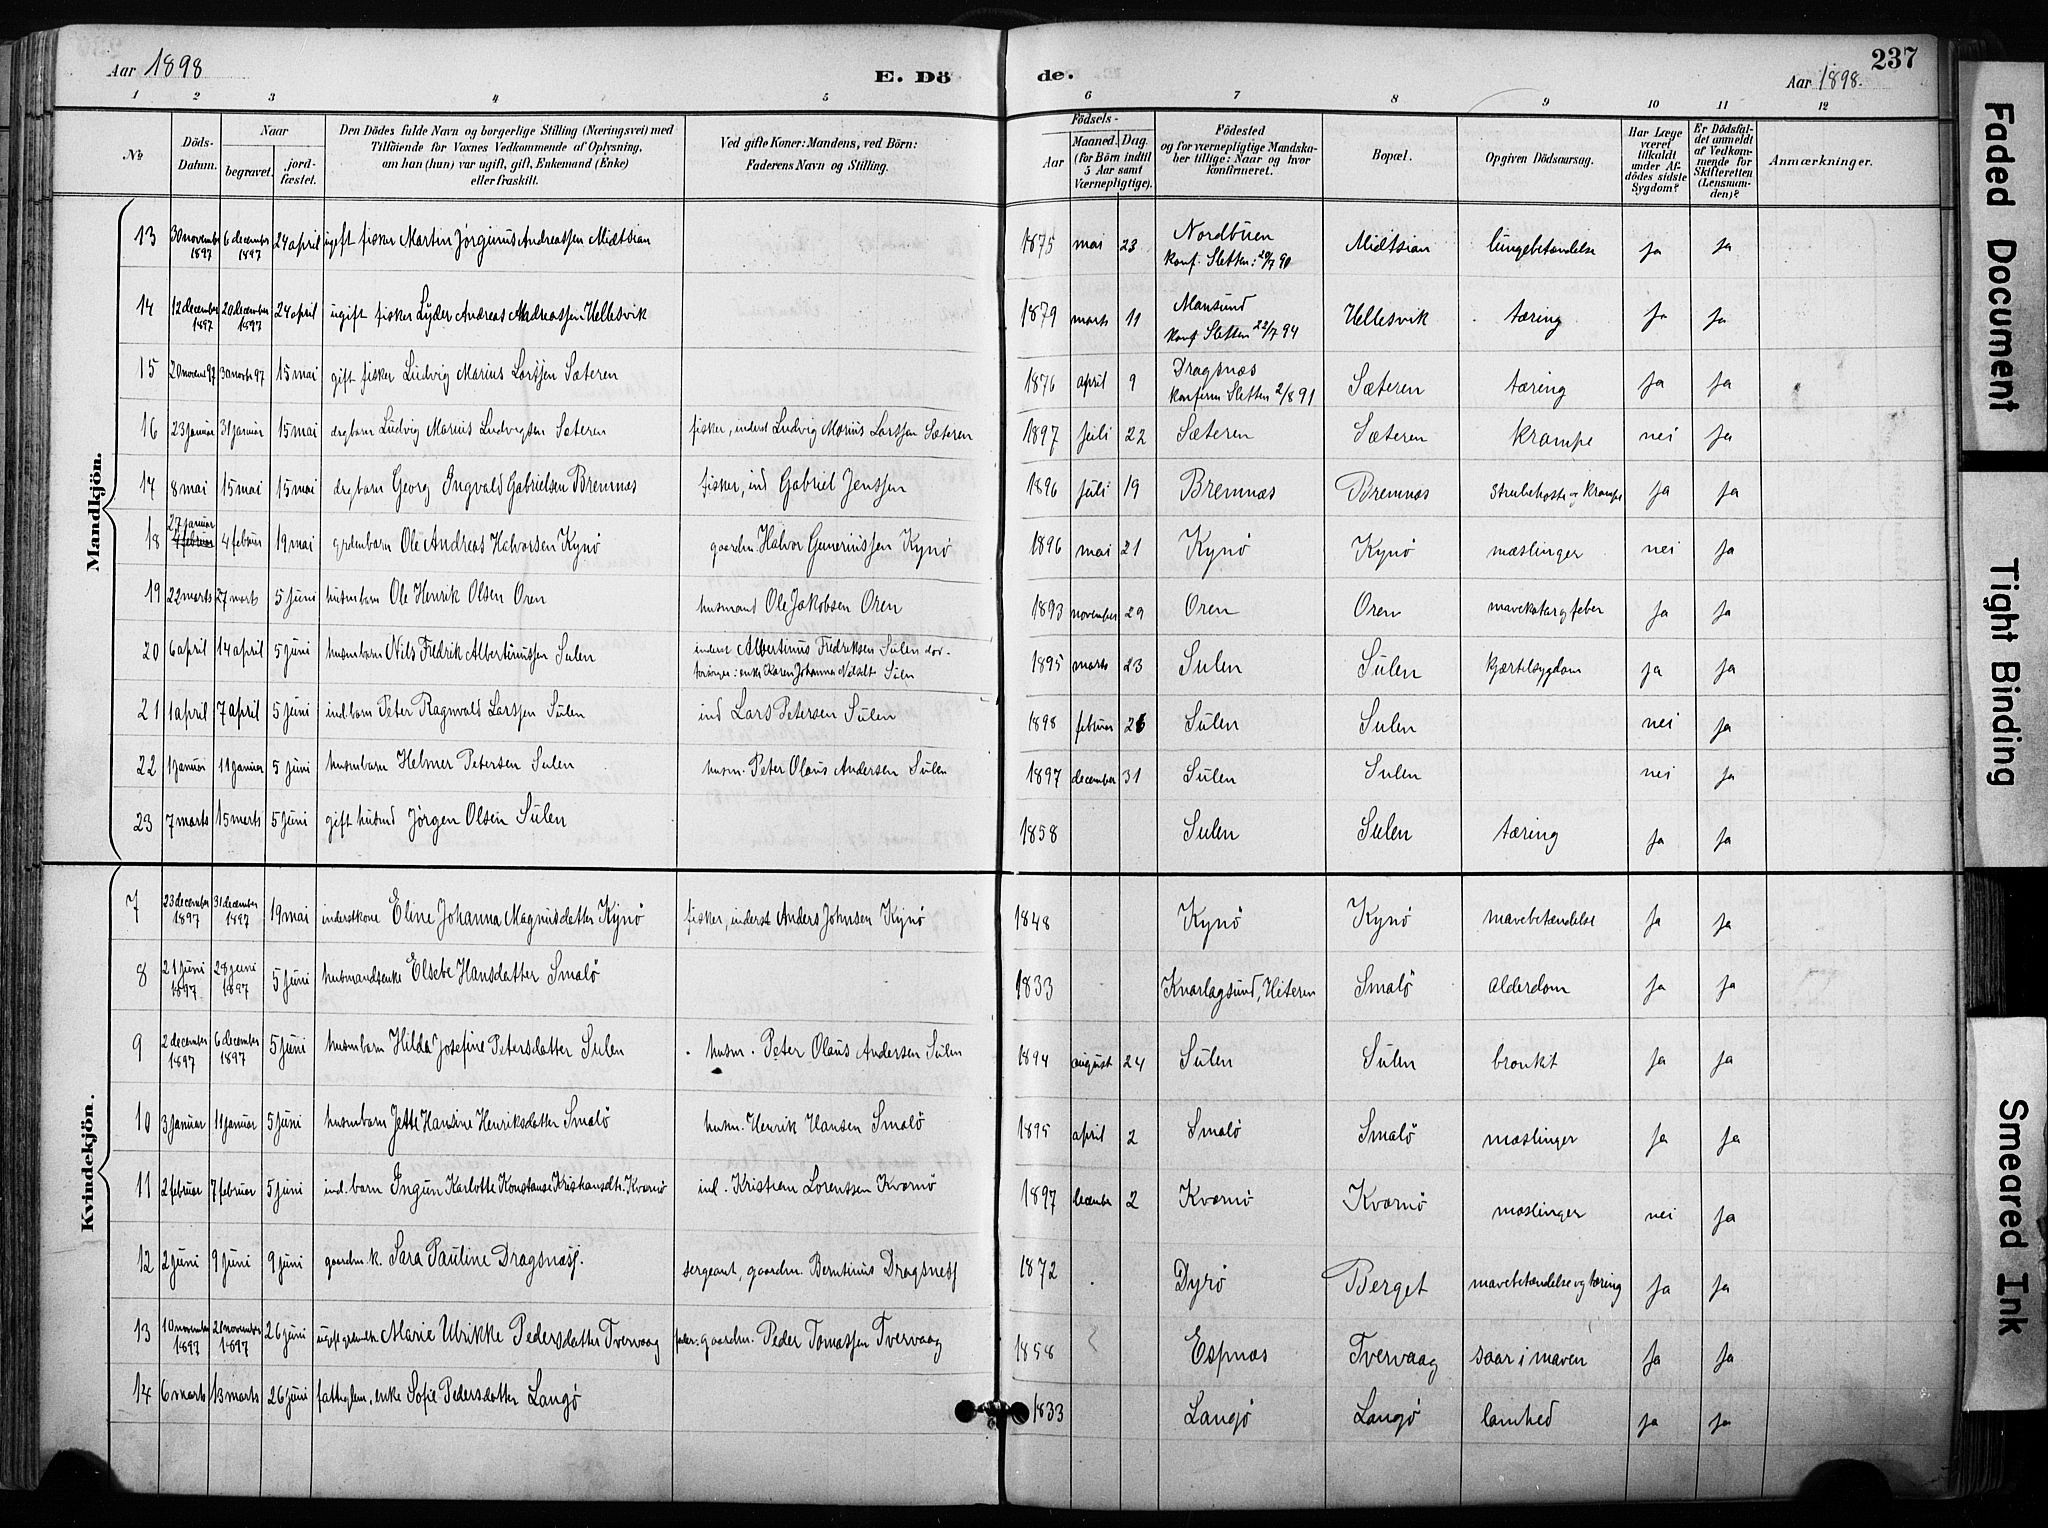 Aar 1898
E. Dö de.
Aar 1898.
237
1 2 3 4 5 6 7 8 9 10 11 12
No
Döds-Datum.
Naar
begravet.
jord-fæstet.
Den Dödes fulde Navn og borgerlige Stilling (Næringsvei) med
Tilföiende for Voxnes Vedkommende af Oplysning,
om han (hun) var ugift, gift, Enkemand (Enke)
eller fraskilt.
Ved gifte Koner: Mandens, ved Börn:
Faderens Navn og Stilling.
Födsels-
Aar
Maaned. Dag.
(for Börn indtil
5 Aar samt
Værnepligtige).
Födested
og for værnepligtige Mandska-
ber tillige: Naar og hvor
konfirmeret.
Bopæl.
Opgiven Dödsaarsag.
Har Læge
været
tilkaldt
under Af-
dödes sidste
Sygdom?
Er Dödsfal-
det anmeldt
af Vedkom-
mende for
Skifteretten
(Lensman-
den)?
Anmærkninger.
Mandkjön.
13 30 november 1897 6 december 1897 24 april ugift fisker Martin Jörginus Andreassen Midtsian 1875 mai 23 Nordbuen konf. Sletten: 20/7 90 Midtsian lungebetændelse ja ja
14 12 december 1897 20 december 1897 24 april ugift fisker Lyder Andreas Andreassen Hellesvik 1879 marts 11 Mausund konf Sletten 22/7 94 Hellesvik tæring ja ja
15 15 mai gift fisker Ludvig Marius Larssen Sæteren 1876 april 9 Dragsnæs konfirm Sletten 2/8 91 Sæteren tæring ja ja
16 23 januar 31 januar 15 mai Ludvig Marius Ludvigsen Sæteren fisker, inderst Ludvig Marius Larssen Sæteren 1897 juli 22 Sæteren Sæteren krampe nei ja
17 8 mai 15 mai 15 mai Georg Ingvald Gabrielsen Bremnæs fisker, ind Gabriel Jenssen 1896 juli 19 Bremnæs Bremnæs strubehoste og krampe ja ja
18 27 januar 4 februar 4 februar 19 mai grdmbarn Ole Andreas Halvorsen Kynö gaardm Halvor Guneriussen Kynö 1896 mai 21 Kynö Kynö mæslinger nei ja
19 22 marts 27 marts 5 juni husmbarn Ole Henrik Olsen Oren husmand Ole Jakobsen Oren 1893 november 29 Oren Oren mavekatar og feber ja ja
20 6 april 14 april 5 juni husmbarn Nils Fredrik Albertinussen Sulen inderst Albertinus Fredriksen Sulen enke Karen Johanna Sulen 1895 marts 23 Sulen Sulen kjærtelsygdom ja ja
21 1 april 7 april 5 juni ind. barn Peter Ragnvald Larssen Sulen ind Lars Petersen Sulen 1898 februar 26 Sulen Sulen nei ja
22 1 januar 11 januar 5 juni husmbarn Helmer Petersen Sulen husm. Peter Olaus Andersen Sulen 1897 december 31 Sulen Sulen nei ja
23 7 marts 15 marts 5 juni gift husmd Jörgen Olsen Sulen 1858 Sulen Sulen tæring ja ja
Kvindekjön.
7 23 december 1897 31 december 1897 19 mai inderstkone Eline Johanna Magnusdatter Kynö fisker, inderst Anders Johnsen Kynö 1848 Kynö Kynö mavebetændelse ja ja
8 21 juni 1897 28 juni 1897 5 juni husmandsenke Elsebe Hansdatter Smalö 1833 Knarlagsund, Hiteren Smalö alderdom ja ja
9 2 december 1897 6 december 1897 5 juni husmbarn Hilda Josefine Petersdatter Sulen husm. Peter Olaus Andersen Sulen 1894 august 24 Sulen Sulen bronkit ja ja
10 3 januar 11 januar 5 juni husmbarn Jette Hansine Henriksdatter Smalö husm. Henrik Hansen Smalö 1895 april 2 Smalö Smalö mæslinger ja ja
11 2 februar 7 februar 5 juni ind. barn Ingun Karlotte Konstanse Kristiansdtr. Kværnö ind. Kristian Lorentssen Kværnö 1897 december 2 Kværnö Kværnö mæslinger nei ja
12 2 juni 9 juni 9 juni gaardm k. Sara Pauline Dragsnæs. sergeant, gaardm. Berntinus Dragsnes 1872 Dyrö Berget mavebetændelse og tæring ja ja
13 10 november 1897 21 november 1897 26 juni Marie Ulrikke Pedersdatter Tvervaag fader: gaardm. Peder Tomassen Tvervaag 1858 Espnæs Tvervaag saar i maven ja ja
14 6 marts 13 marts 26 juni fattiglem, enke Sofie Pedersdatter Langö 1833 Langö Langö lamhed ja ja
Faded Document
Tight Binding
Smeared Ink